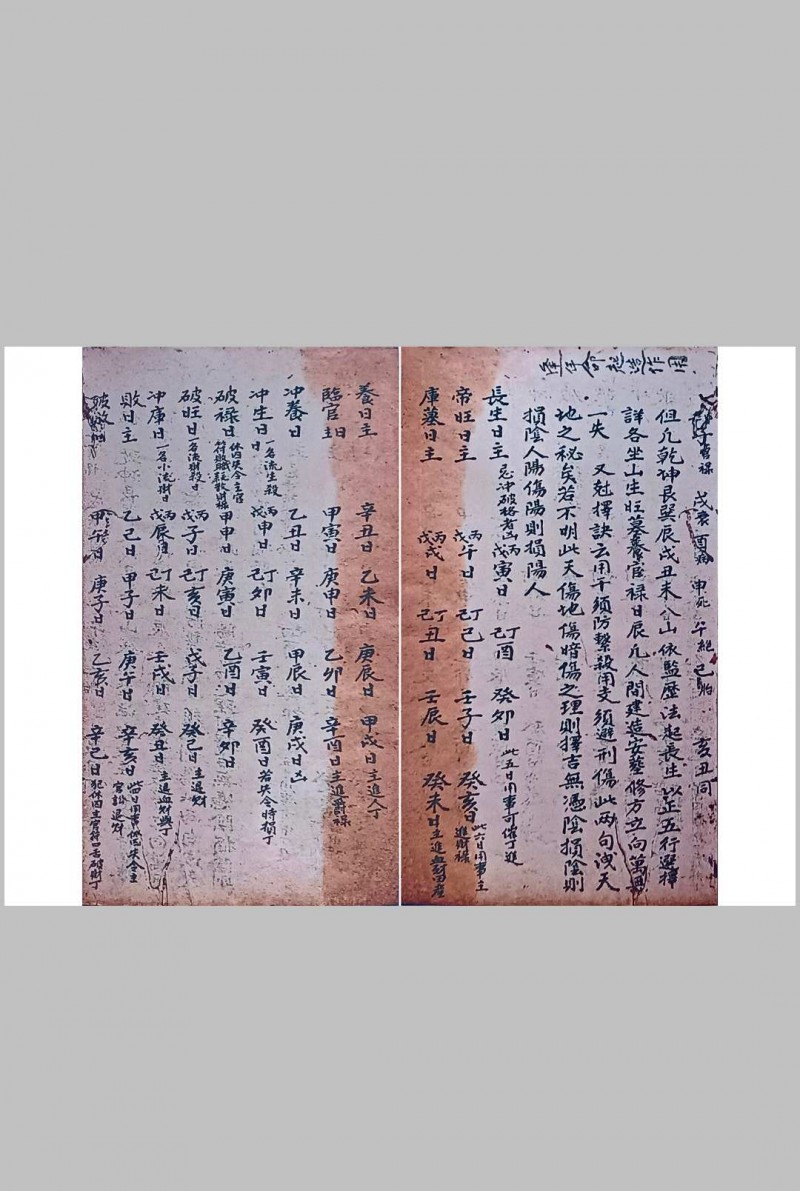 作用
官祿 戌衰 酉病 申死 午絕 己胎 亥丑同
但凡乾坤艮巽辰戌丑未八山依監歷法起長生以正五行選擇
詳各坐山生旺墓養官祿日辰凡人間建造安塟修方立向萬無
一失 又尅擇訣云用干須防繫殺用支須避刑傷此兩句洩天
地之秘矣若不明此天傷地傷暗傷之理則擇吉無憑陰損陰則
損陰人陽傷陽則損陽人
長生日主 忌冲破格者凶 丙戊寅日 丁己酉 癸卯日 此五日用事可催丁進
帝旺日主 丙戊午日 丁己巳日 壬子日 癸亥日 此六日用事主進財祿
庫墓日主 丙戊戌日 丁己丑日 壬辰日 癸未日 主進血財田產
養日主 辛丑日 乙未日 庚辰日 甲戌日 主進人丁
臨官日主 甲寅日 庚申日 乙卯日 辛酉日 主進爵祿
冲養日 乙丑日 辛未日 甲辰日 庚戌日 凶
冲生日 一名流生殺 丙戊申日 丁己卯日 壬寅日 癸酉日 若失令時損丁
破祿日 休囚失令主官符 甲申日 庚寅日 乙酉日 辛卯日
破旺日 一名流財殺日 丙戊子日 丁己亥日 戊子日 癸巳日 主退財
冲庫日 一名小流財日 丙戊辰日 丁己未日 壬戌日 癸丑日 主退血財與丁
敗日主 乙己日 甲子日 庚午日 辛亥日 此日用事休囚失令主官訟退財
破敗 甲午日 庚子日 乙亥日 辛己日 犯休囚主官符口舌破財丁